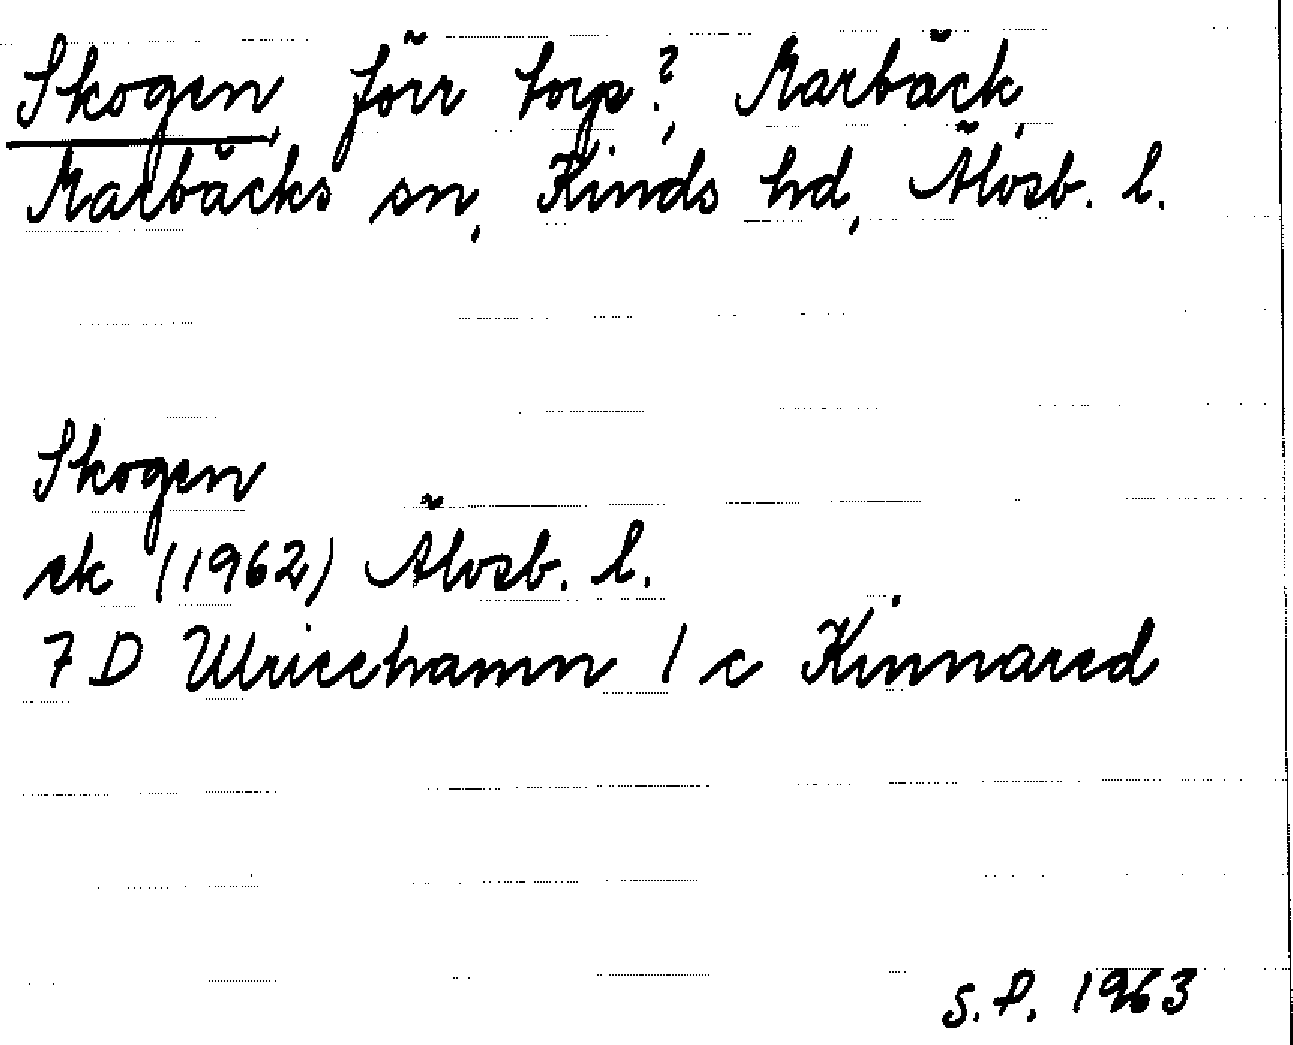 Skogen, förr torp?, Marbäck,
Marbäcks sn, Kinds hd, Älvsb. l.
Skogen
ek (1962) Älvsb. l.
7 D Ulricehamn 1 c Kinnared
S.P. 1963